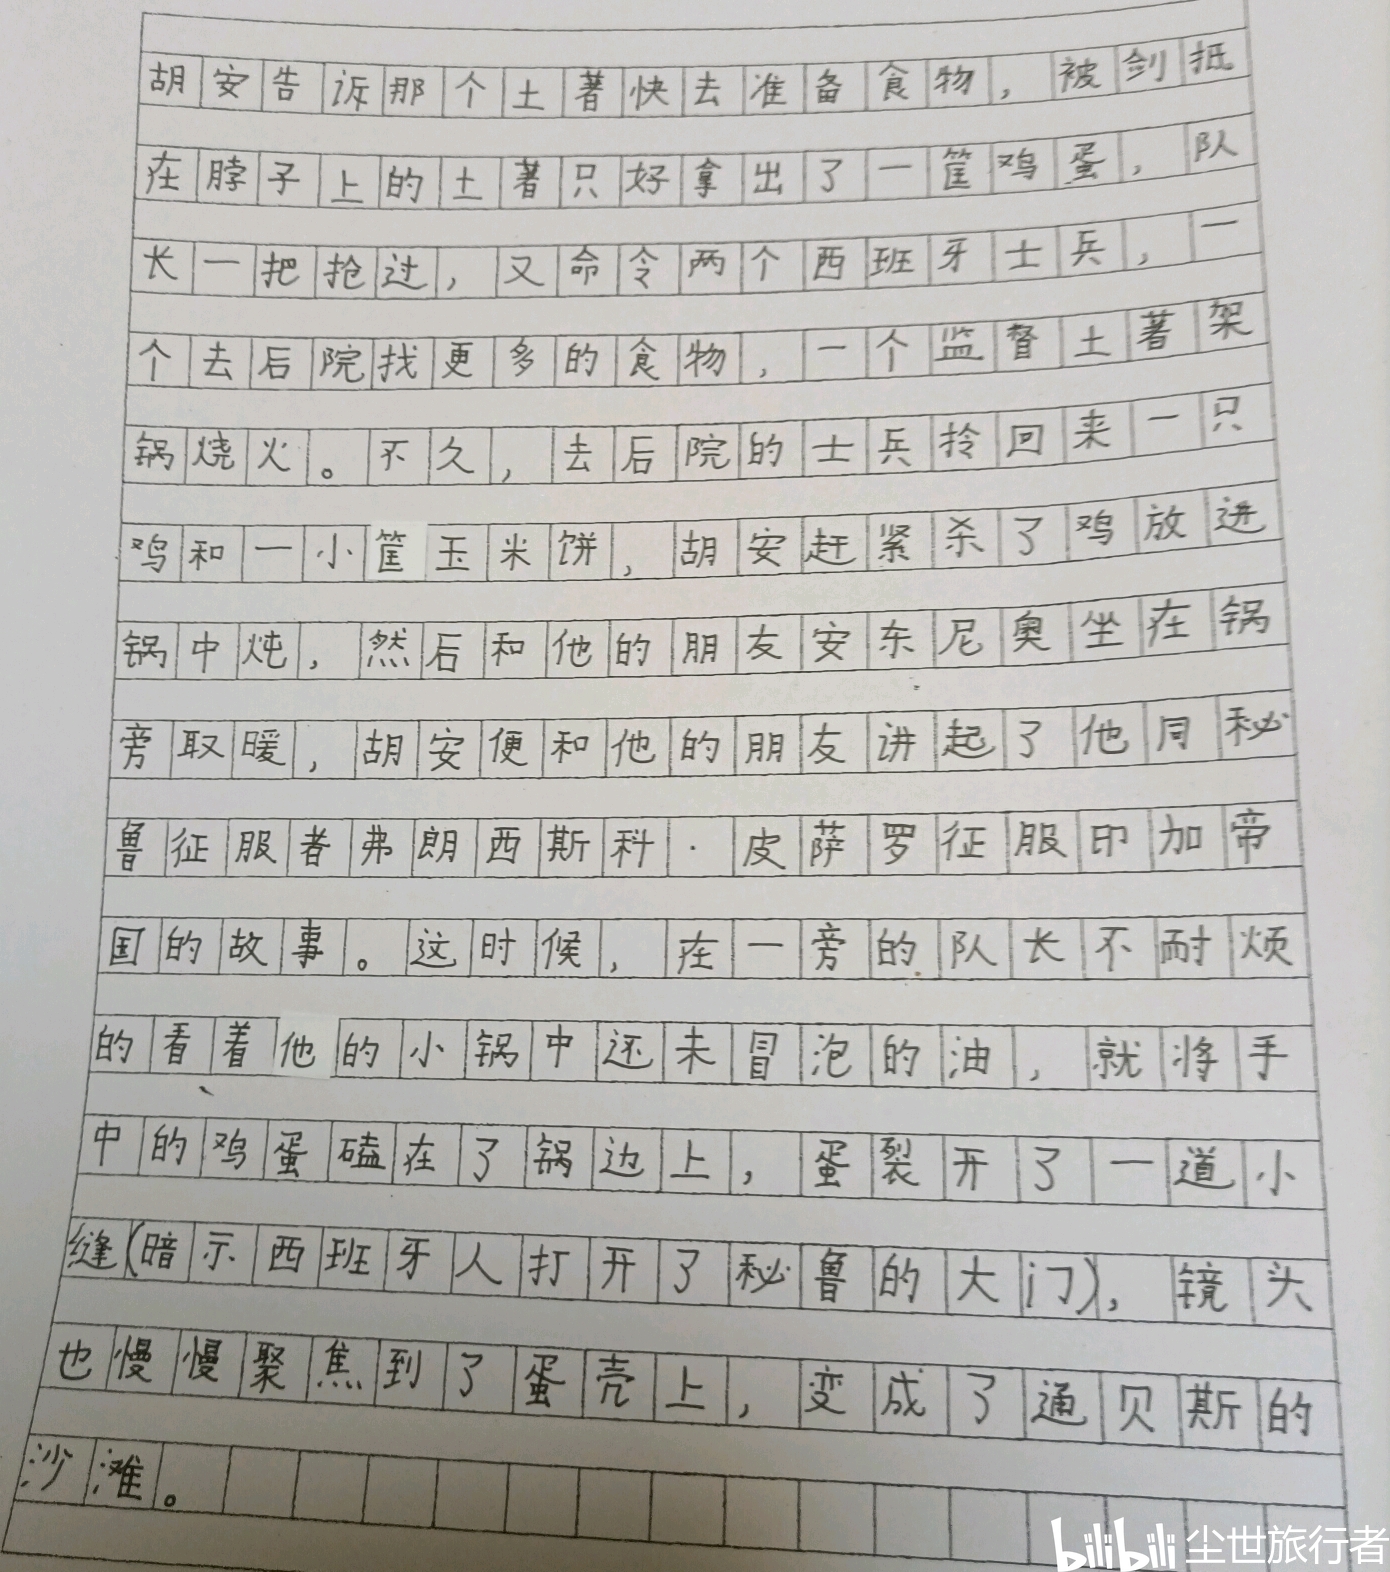 胡安告诉那个土著快去准备食物，被剑抵
在脖子上的土著只好拿出了一筐鸡蛋，队
长一把抢过，又命令两个西班牙士兵，一
个去后院找更多的食物，一个监督土著架
锅烧火。不久，去后院的士兵拎回来一只
鸡和一小筐玉米饼，胡安赶紧杀了鸡放进
锅中炖，然后和他的朋友安东尼奥坐在锅
旁取暖，胡安便和他的朋友讲起了他同秘
鲁征服者弗朗西斯科·皮萨罗征服印加帝
国的故事。这时候，在一旁的队长不耐烦
的看着他的小锅中还未冒泡的油，就将手
中的鸡蛋磕在了锅边上，蛋裂开了一道小
缝(暗示西班牙人打开了秘鲁的大门)，镜头
也慢慢聚焦到了蛋壳上，变成了通贝斯的
沙滩。
bilibili 尘世旅行者